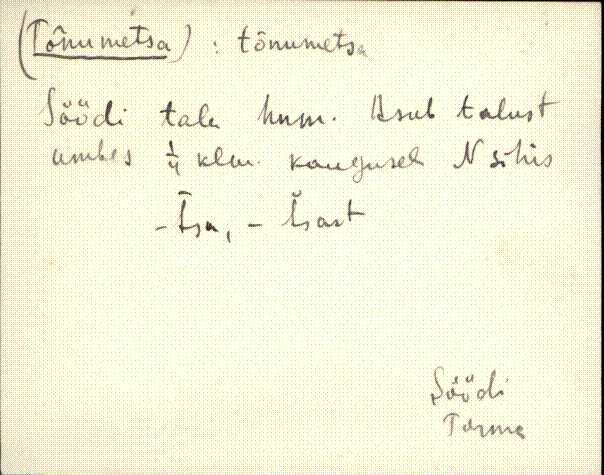 (Tõnumetsa) : tõnumetsa
Söödi talu hnm. Asub talust
umbes 1/4 klm. kaugusel N sihis
- Ĭsa, - ĭsast
Söödi
Torma